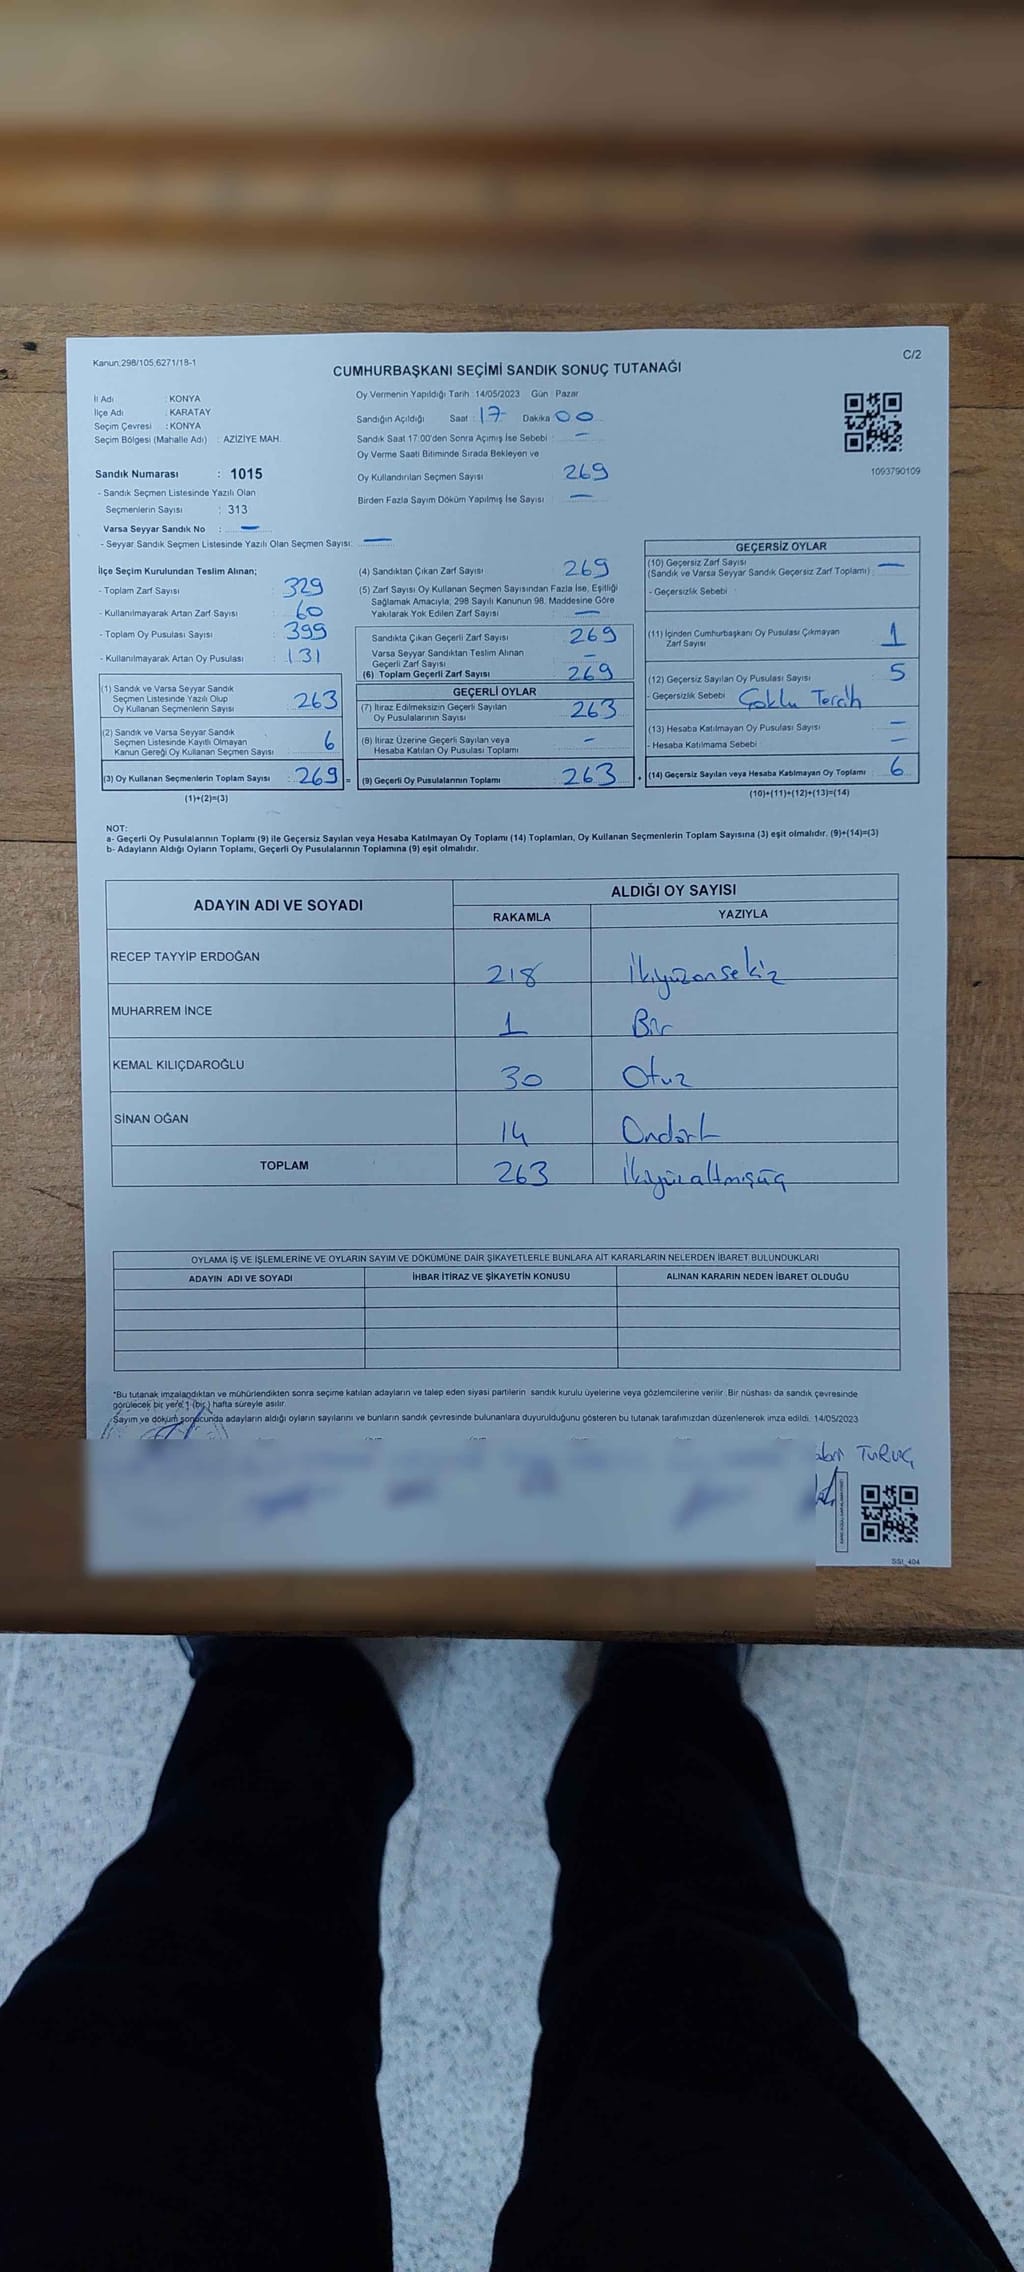 Kanun:298/105,6271/18-1
C/2
CUMHURBAŞKANI SEÇİMİ SANDIK SONUÇ TUTANAĞI
İl Adı : KONYA
İlçe Adı : KARATAY
Seçim Çevresi : KONYA
Seçim Bölgesi (Mahalle Adı) : AZİZİYE MAH.
Sandık Numarası : 1015
- Sandık Seçmen Listesinde Yazılı Olan
Seçmenlerin Sayısı : 313
Varsa Seyyar Sandık No : —
- Seyyar Sandık Seçmen Listesinde Yazılı Olan Seçmen Sayısı: —
Oy Vermenin Yapıldığı Tarih : 14/05/2023 Gün : Pazar
Sandığın Açıldığı Saat : 17 Dakika 00
Sandık Saat 17.00'den Sonra Açımış İse Sebebi : —
Oy Verme Saati Bitiminde Sırada Bekleyen ve
Oy Kullandırılan Seçmen Sayısı 269
Birden Fazla Sayım Döküm Yapılmış İse Sayısı —
1093790109
İlçe Seçim Kurulundan Teslim Alınan;
- Toplam Zarf Sayısı : 329
- Kullanılmayarak Artan Zarf Sayısı : 60
- Toplam Oy Pusulası Sayısı : 399
- Kullanılmayarak Artan Oy Pusulası : 131
(1) Sandık ve Varsa Seyyar Sandık
Seçmen Listesinde Yazılı Olup
Oy Kullanan Seçmenlerin Sayısı : 263
(2) Sandık ve Varsa Seyyar Sandık
Seçmen Listesinde Kayıtlı Olmayan
Kanun Gereği Oy Kullanan Seçmen Sayısı : 6
(3) Oy Kullanan Seçmenlerin Toplam Sayısı : 269 =
(1)+(2)=(3)
(4) Sandıktan Çıkan Zarf Sayısı : 269
(5) Zarf Sayısı Oy Kullanan Seçmen Sayısından Fazla İse, Eşitliği
Sağlamak Amacıyla, 298 Sayılı Kanunun 98. Maddesine Göre
Yakılarak Yok Edilen Zarf Sayısı : —
Sandıkta Çıkan Geçerli Zarf Sayısı : 269
Varsa Seyyar Sandıktan Teslim Alınan
Geçerli Zarf Sayısı : —
(6) Toplam Geçerli Zarf Sayısı : 269
GEÇERLİ OYLAR
(7) İtiraz Edilmeksizin Geçerli Sayılan
Oy Pusulalarının Sayısı : 263
(8) İtiraz Üzerine Geçerli Sayılan veya
Hesaba Katılan Oy Pusulası Toplamı : -
(9) Geçerli Oy Pusulalarının Toplamı : 263 +
GEÇERSİZ OYLAR
(10) Geçersiz Zarf Sayısı
(Sandık ve Varsa Seyyar Sandık Geçersiz Zarf Toplamı) : —
- Geçersizlik Sebebi :
(11) İçinden Cumhurbaşkanı Oy Pusulası Çıkmayan
Zarf Sayısı : 1
(12) Geçersiz Sayılan Oy Pusulası Sayısı : 5
- Geçersizlik Sebebi : Çoklu Tercih
(13) Hesaba Katılmayan Oy Pusulası Sayısı : —
- Hesaba Katılmama Sebebi : —
(14) Geçersiz Sayılan veya Hesaba Katılmayan Oy Toplamı : 6
(10)+(11)+(12)+(13)=(14)
NOT:
a- Geçerli Oy Pusulalarının Toplamı (9) ile Geçersiz Sayılan veya Hesaba Katılmayan Oy Toplamı (14) Toplamları, Oy Kullanan Seçmenlerin Toplam Sayısına (3) eşit olmalıdır. (9)+(14)=(3)
b- Adayların Aldığı Oyların Toplamı, Geçerli Oy Pusulalarının Toplamına (9) eşit olmalıdır.
ADAYIN ADI VE SOYADI ALDIĞI OY SAYISI
RAKAMLA YAZIYLA
RECEP TAYYİP ERDOĞAN 218 İkiyüzonsekiz
MUHARREM İNCE 1 Bir
KEMAL KILIÇDAROĞLU 30 Otuz
SİNAN OĞAN 14 Ondört
TOPLAM 263 İkiyüzaltmışüç
OYLAMA İŞ VE İŞLEMLERİNE VE OYLARIN SAYIM VE DÖKÜMÜNE DAİR ŞİKAYETLERLE BUNLARA AİT KARARLARIN NELERDEN İBARET BULUNDUKLARI
ADAYIN ADI VE SOYADI İHBAR İTİRAZ VE ŞİKAYETİN KONUSU ALINAN KARARIN NEDEN İBARET OLDUĞU
*Bu tutanak imzalandıktan ve mühürlendikten sonra seçime katılan adayların ve talep eden siyasi partilerin sandık kurulu üyelerine veya gözlemcilerine verilir. Bir nüshası da sandık çevresinde
görülecek bir yere 1 (bir) hafta süreyle asılır.
Sayım ve döküm sonucunda adayların aldığı oyların sayılarını ve bunların sandık çevresinde bulunanlara duyurulduğunu gösteren bu tutanak tarafımızdan düzenlenerek imza edildi. 14/05/2023
TURUÇ
SSI_404